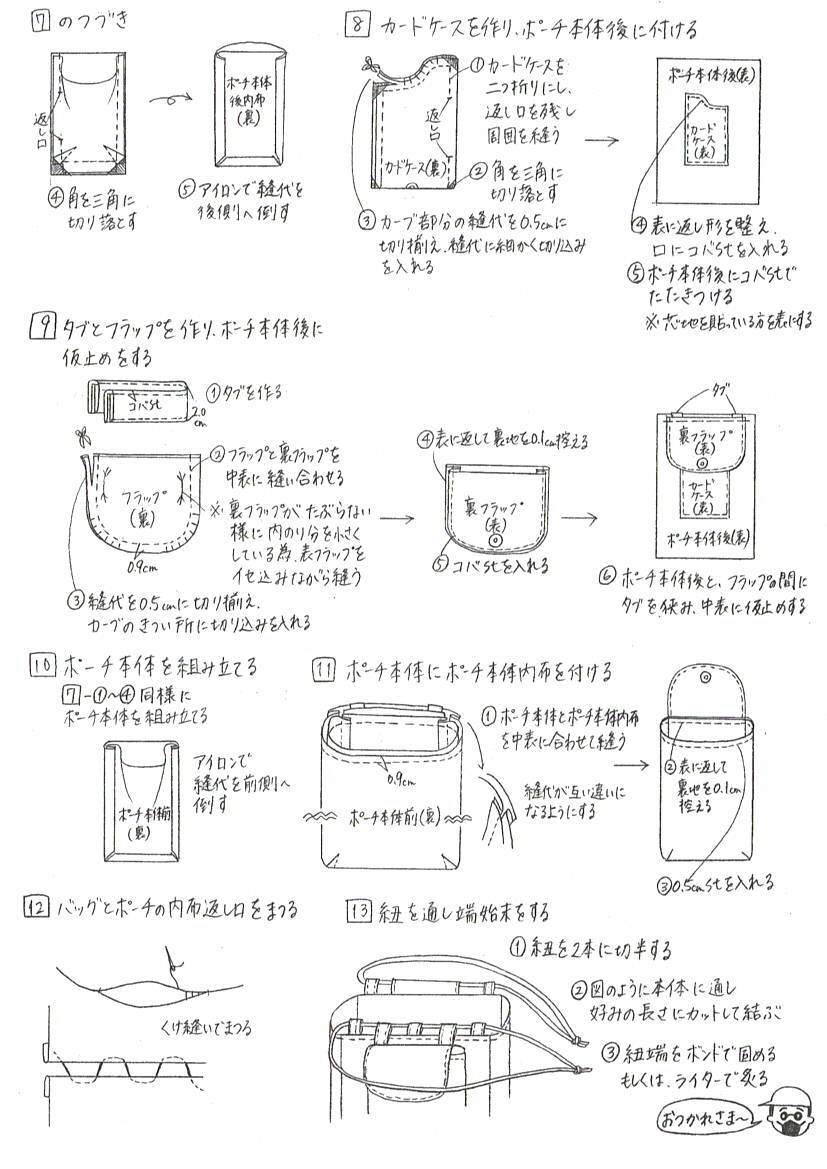 7 のつづき
返し口
④角を三角に
切り落とす
ポーチ本体
後内布
(裏)
⑤アイロンで縫代を
後側へ倒す
8 カードケースを作り、ポーチ本体後に付ける
①カードケースを
二つ折りにし、
返し口を残し
周囲を縫う
返し口
カードケース(裏)
②角を三角に
切り落とす
③カーブ部分の縫代を0.5cmに
切り揃え、縫代に細かく切り込み
を入れる
ポーチ本体後(表)
カード
ケース
(表)
④表に返し形を整え、
口にコバstを入れる
⑤ポーチ本体後にコバstで
たたきつける
※芯地を貼っている方を表にする
9 タブとフラップを作り、ポーチ本体後に
仮止めをする
コバst
2.0
cm
①タブを作る
フラップ
(裏)
0.9cm
②フラップと裏フラップを
中表に縫い合わせる
※裏フラップがたぶらない
様に内のり分を小さく
している為、表フラップを
イセ込みながら縫う
③縫代を0.5cmに切り揃え、
カーブのきつい所に切り込みを入れる
④表に返して裏地を0.1cm控える
裏フラップ
(表)
⑤コバstを入れる
タブ
裏フラップ
(表)
カード
ケース
(表)
ポーチ本体後(表)
⑥ポーチ本体後と、フラップの間に
タブを挟み、中表に仮止めする
10 ポーチ本体を組み立てる
7-①~④同様に
ポーチ本体を組み立てる
ポーチ本体前
(裏)
アイロンで
縫代を前側へ
倒す
11 ポーチ本体にポーチ本体内布を付ける
0.9cm
ポーチ本体前(裏)
①ポーチ本体とポーチ本体内布
を中表に合わせて縫う
縫代が互い違いに
なるようにする
②表に返して
裏地を0.1cm
控える
③0.5cmstを入れる
12 バッグとポーチの内布返し口をまつる
くけ縫いでまつる
13 紐を通し端始末をする
①紐を2本に切半する
②図のように本体に通し
好みの長さにカットして結ぶ
③紐端をボンドで固める
もしくは、ライターで炙る
おつかれさま〜